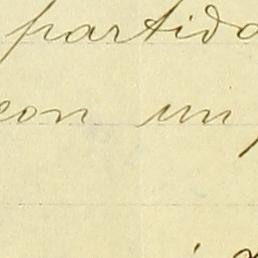 partido
con un